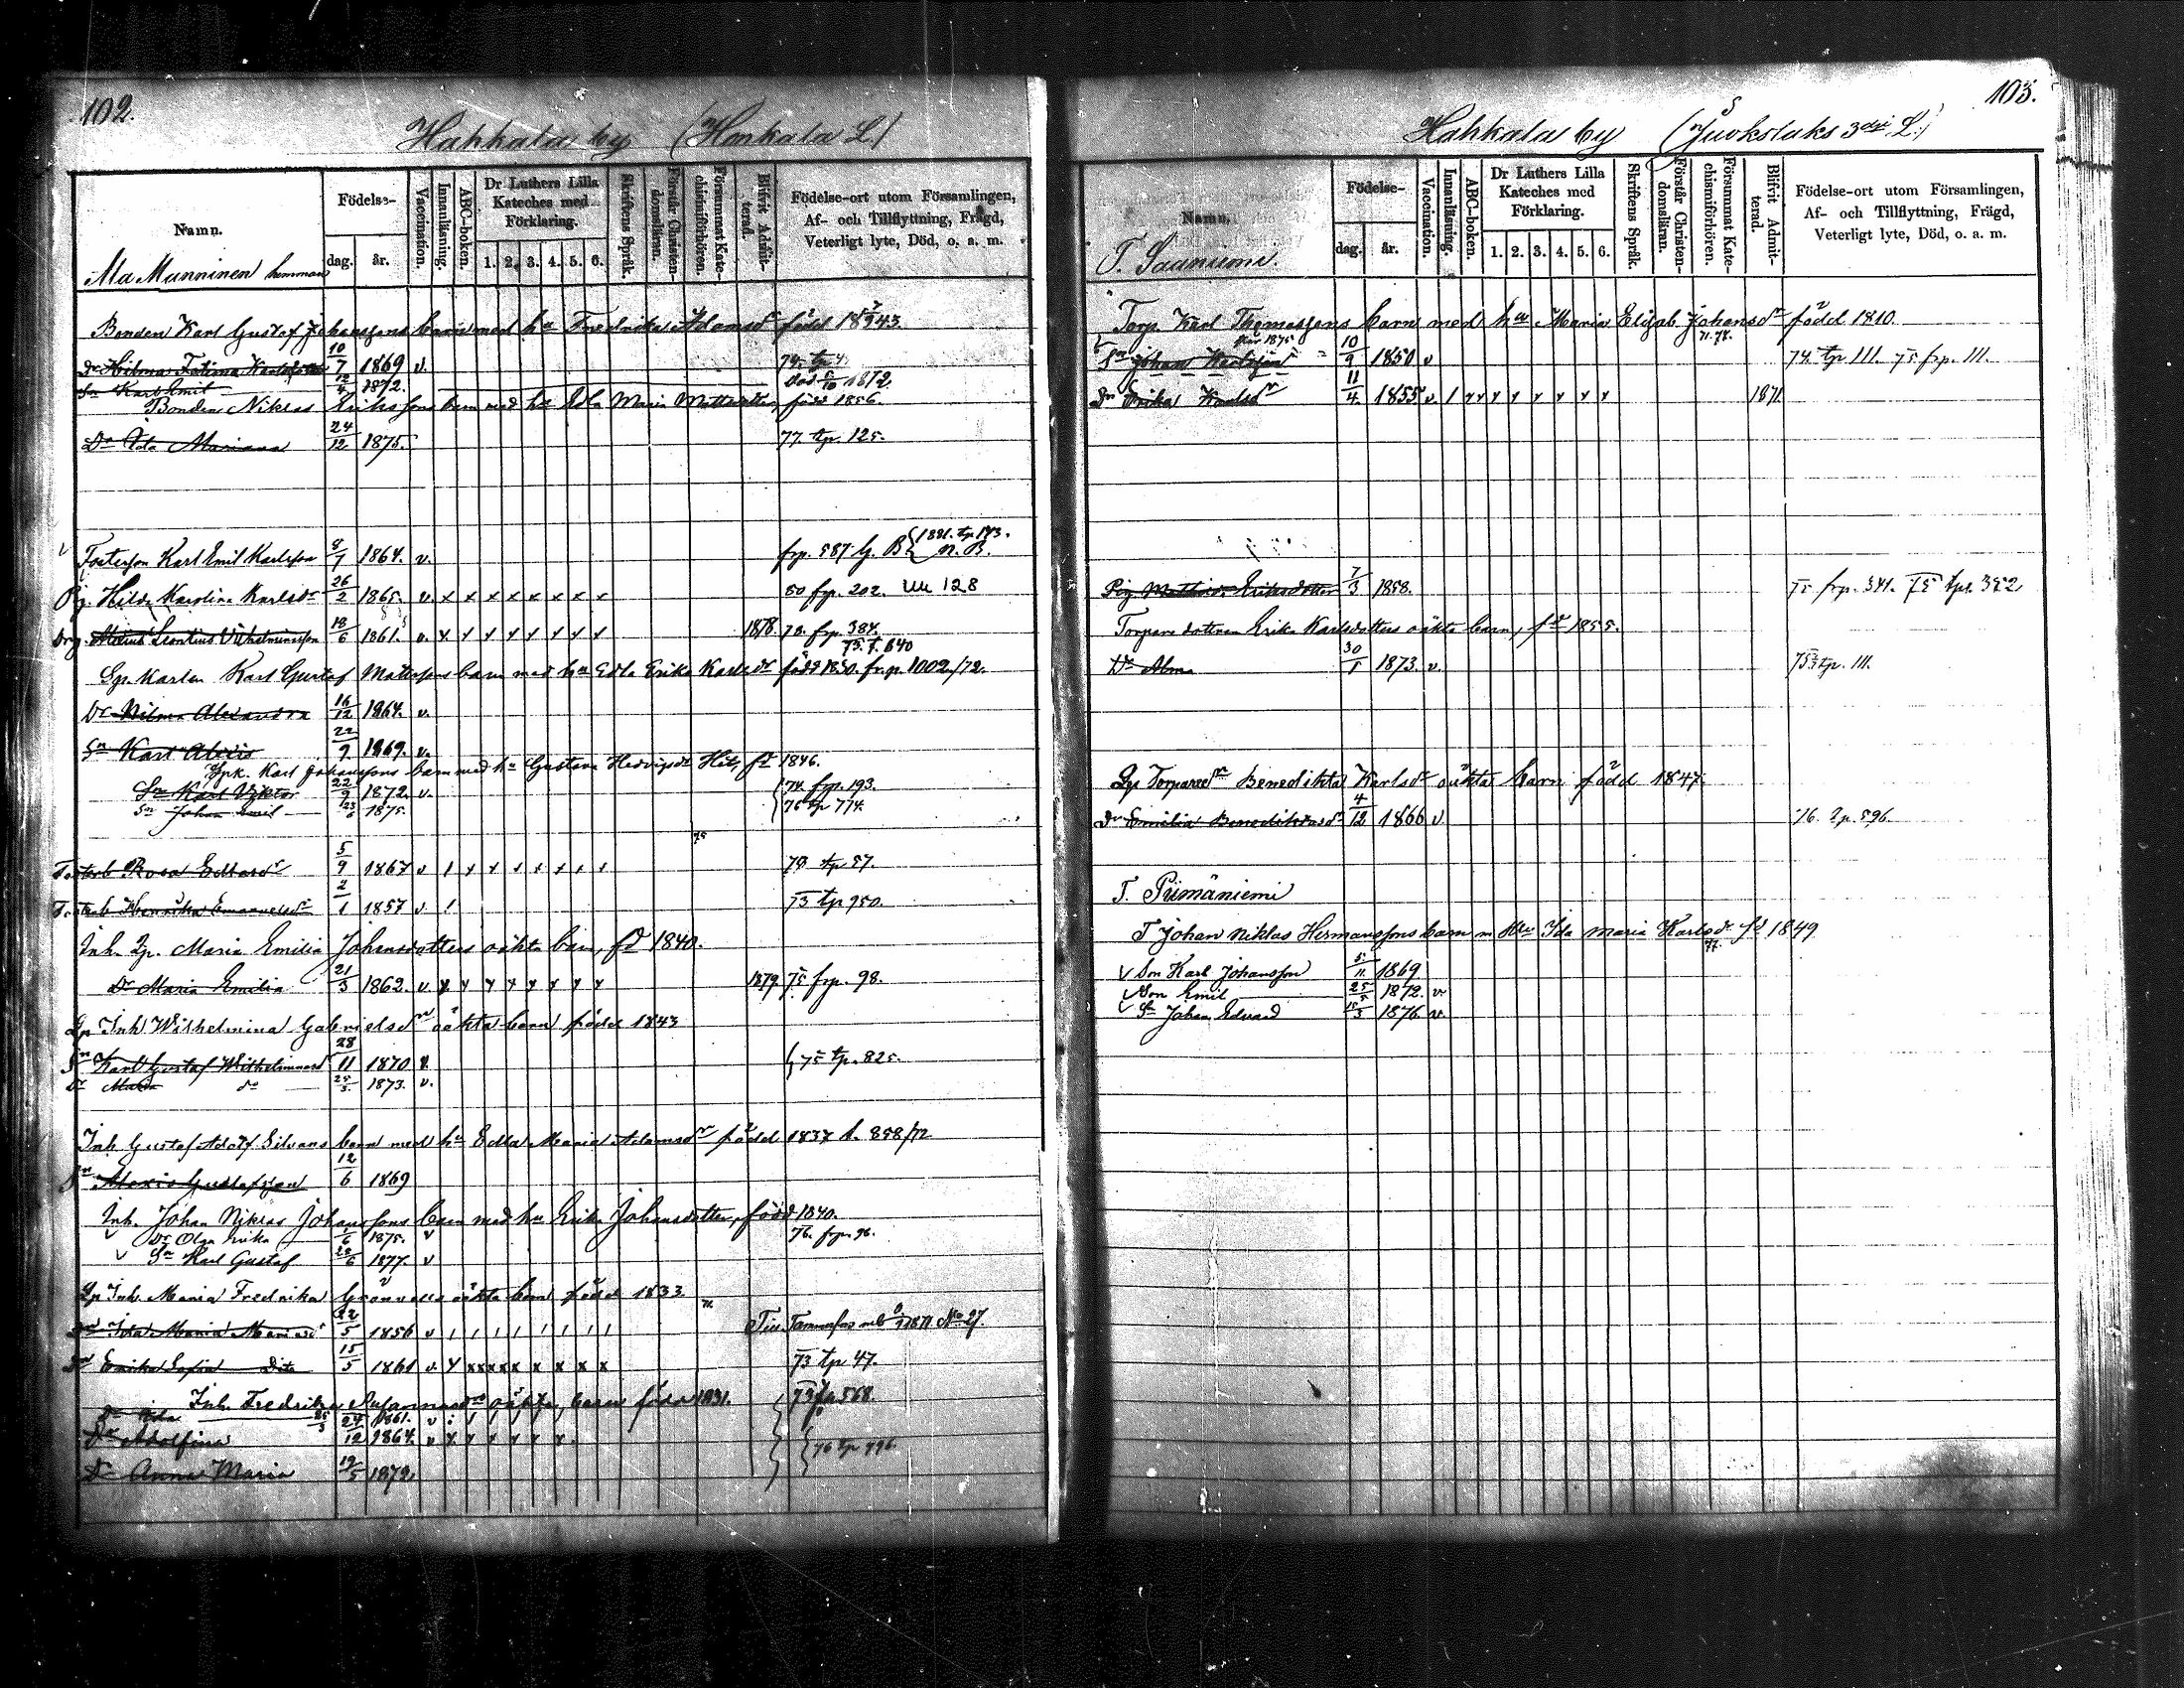 102.
Hahkala by (Honkala L.)
Namn.
Födelse-
dag. år.
Vaccination.
Innanläsning.
ABC-boken.
Dr Luthers Lilla Kateches med Förklaring.
1. 2. 3. 4. 5. 6.
Skriftens Språk.
Förstår Christendomsläran.
Försummat Katechismiförhören.
Blifvit Admitterad.
Födelse-ort utom Församlingen, Af- och Tillflyttning, Frägd, Veterligt lyte, Död, o. a. m.
Ala Manninen hemman
Bonden Karl Gustaf Johanssons barn med hu Fredrika Adamsdr född 1843.
Dr Hilma Fatima 10/7 1869 v.
Sn Karl Emil 12/4 1872. död 1872.
Bonden Niklas Erikssons barn med hu Edla Maria född 1856.
Dr Ida Mariana 24/12 1875. 77. tp. 125.
Fosterson Karl Emil Karlsson 8/7 1864. v. frp. 587 G. B. {1881. tp. 173. N. B.
Pig. Hilda Karolina Karlsdr 26/2 1865. v. x x x x x x x x 80 frp. 202. Uu 128
Drg. Leontius Vilhelminsson 18/6 1861. v. 1878 78. frp. 384.
75. t. 640
Gp. Karlen Karl Gustaf Matssons barn med hu Edla Erika Karlsdr född 1830. frp. 1002./72.
Dr Hilma Alexandra 16/12 1864. v.
Sn Karl Alexis 22/9 1869. v.
Spk. Karl Johanssons barn med hu Gustava Hedvigsdr fd 1846.
Sn Karl Viktor 22/9 1872. v. {74. frp. 193.
Sn Johan Emil 23/6 1875. {76 tp 774.
Rosa Edlasdr 5/9 1867 v 78 tp 57.
Henrika Emanuelsdr 2/1 1857 v 73 tp 950.
Inh. Gp. Maria Emilia Johansdotters oäkta barn, fd 1840.
Dr Maria Emilia 21/3 1862. v 1879 75 frp. 98.
Gp Inh Wilhelmina Gabrielsdrs oäkta barn född 1843
Sn Karl Gustaf 28/11 1870 v. {75 tp. 825.
Dr Maria do 25/5 1873. v.
Inh Gustaf Adolf Silvans barn med hu Edla Maria Adamsdr född 1837 t. 858/72
Sn Alexis Gustafsson 12/6 1869
Inh. Johan Niklas Johanssons barn med hu Erika Johansdotter, född 1840.
Dr Olga Erika 1875. v 76. frp. 96.
Sn Karl Gustaf 28/6 1877. v
Gp Inh. Maria Fredrika Grönvalls oäkta barn född 1833
Dr Ida Maria Mariasdr 22/5 1856 v Till Tammerfors 1871 No 27.
Dr Erika Sofia Dito 15/5 1861 v. 73 tp 47.
Inh. Fredrika Susannasdrs oäkta barn född 1831. 73 568.
Dr Ida 25/3 1861. v
Dr Adolfina 24/12 1864. v {76 tp 796.
Dr Anna Maria 19/5 1872.
103.
Hahkala by (Juokslaks 3dje L.)
Namn.
Födelse-
dag. år.
Vaccination.
Innanläsning.
ABC-boken.
Dr Luthers Lilla Kateches med Förklaring.
1. 2. 3. 4. 5. 6.
Skriftens Språk.
Förstår Christendomsläran.
Försummat Katechismiförhören.
Blifvit Admitterad.
Födelse-ort utom Församlingen, Af- och Tillflyttning, Frägd, Veterligt lyte, Död, o. a. m.
T. Saaniemi.
Torp. Karl Thomassons barn med hu Maria Elisab. Johansdr född 1810.
Sn Johan Karlsson 10/9 1850 v 74. tp 111. 75 frp. 111.
Dr Erika Karlsdr 11/4. 1855 v. 1871.
Pig. Mathilda Eriksdotter 7/3 1858. 75 frp. 341. 75 tp. 352
Torpare dottren Erika Karlsdotters oäkta barn, fd 1855.
Dr Alma 30/1 1873. v. 75 tp. 111.
Gp Torparedr Benedikta Karlsdr oäkta barn född 1847.
Dr Emilia Benediktasdr 4/12 1866 v. 76. tp. 596.
T. Piimäniemi
T Johan Niklas Hermanssons barn m Hu Ida Maria Karlsdr fd 1849
v Son Karl Johansson 5/11 1869
v Son Emil 25/5 1872. v.
v Sn Johan Edvard 15/3 1876. v.